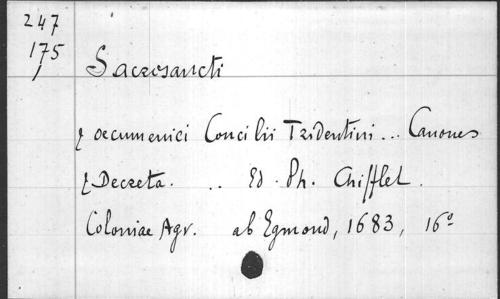 247
175
/
Sacrosancti
& oecumenici Concilii Tridentini ... Canones
& Decreta. .. Ed. Ph. Chifflet.
Coloniae Agr. ab Egmond, 1683, 16º